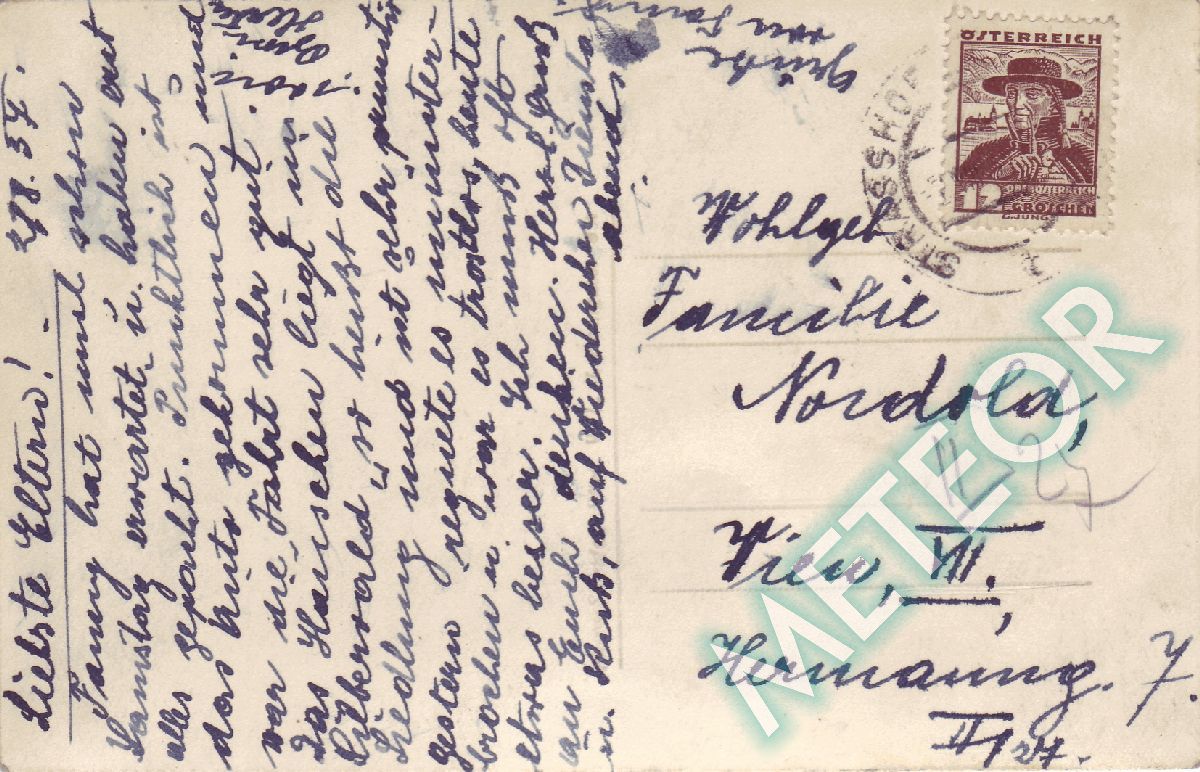 29.8.37.
Liebste Eltern!
Fanny hat uns schon
Samstag erwartet u. haben erst
alles gepackt. Pünktlich ist
das Auto gekommen und
war die Fahrt sehr gut.
Das Häuschen liegt in
Silberwald, so heißt die
Siedlung und ist sehr primitiv
gestern regnete es ununter-
brochen u. war es trostlos, heute
etwas besser. Ich muß oft
an Euch denken. Herzl. Gruß
u. Kuß, auf Wiedersehen Dienstag
abends
Grüße
von Fanny
ÖSTERREICH
12
ÖSTERREICH
GROSCHEN
STRASSHOF
Wohlgeb
Familie
Nordold,
Wien, VII.,
Hermanng. 7.
II/27.
METEOR